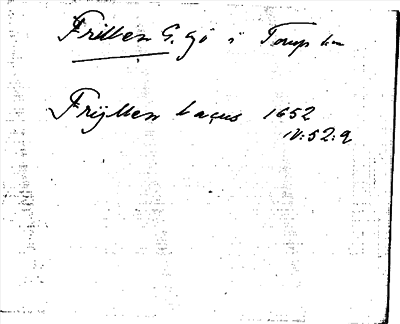 Fritten G. sjö i Torups sn
Frijtten lacus 1652
IV:52:9